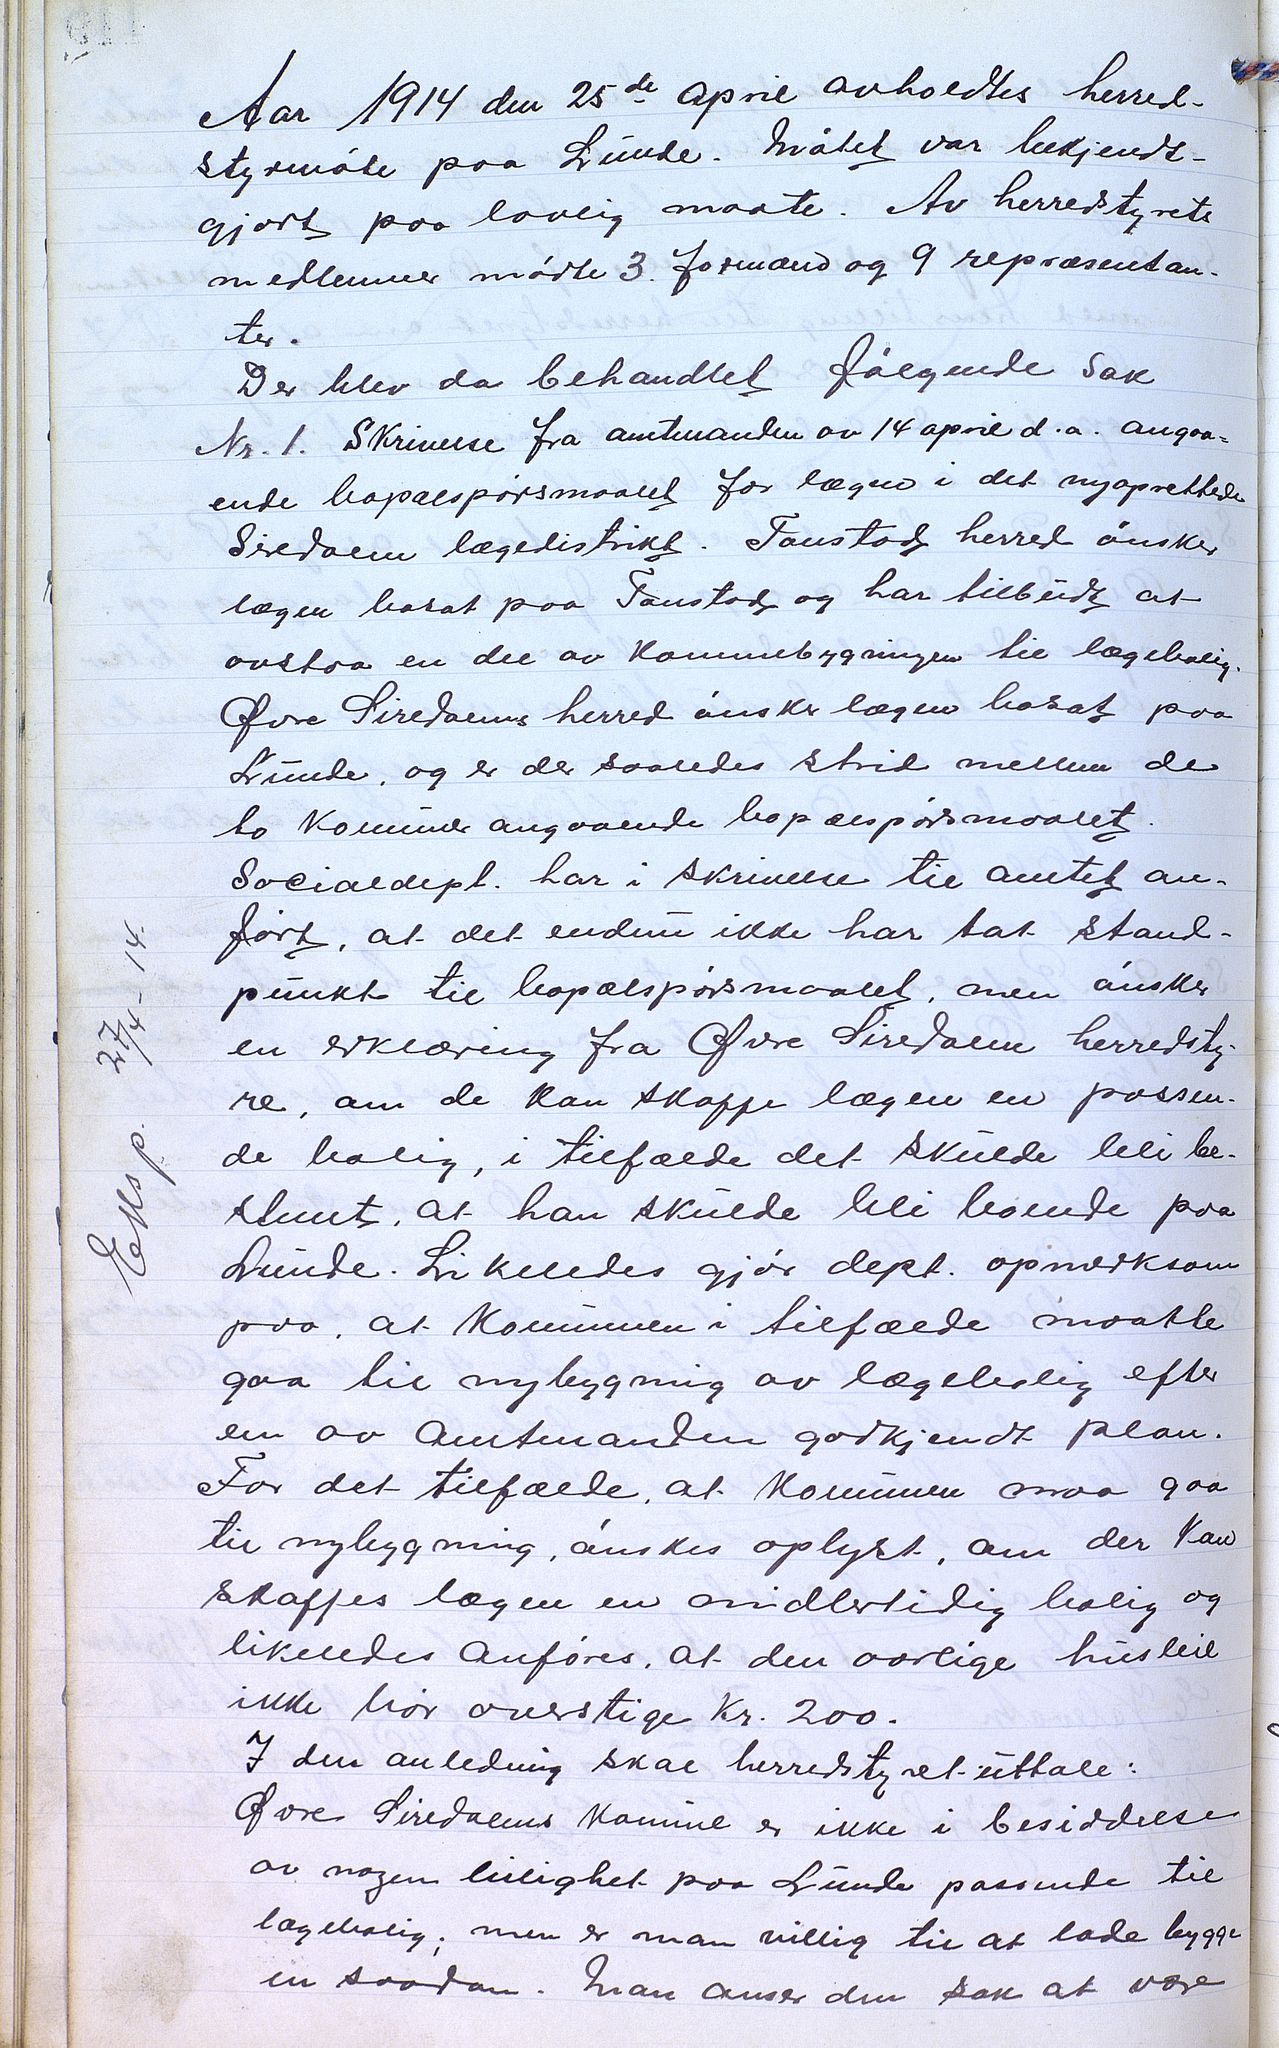 Aar 1914 den 25de april avholdtes herred-
styrmöte paa Lunde. Mötet var bekjendt-
gjort paa lovlig maate. Av herredstyrets
medlemmer mödte 3 formænd og 9 repræsentan-
ter.
Der blev da behandlet fölgende sak
Nr. 1. Skrivelse fra amtmanden av 14 april d.a. angaa-
ende bopælspörsmaalet for lægen i det nyoprettede
Siredalen lægedistrikt. Tonstad herred önsker
lægen bosat paa Tonstad og har tilbudt at
avstaa en del av kommunebygningen til lægebolig.
Øvre Siredalens herred önsker lægen bosat paa
Lunde, og er der saaledes strid mellem de
to kommuner angaaende bopælspörsmaalet.
Socialdept. har i skrivelse til amtet an-
fört, at det endnu ikke har tat stand-
punkt til bopælspörsmaalet, men önsker
en erklæring fra Øvre Siredalen herredsty-
re, om de kan skaffe lægen en passen-
de bolig, i tilfælde det skulde bli be-
stemt, at han skulde bli boende paa
Lunde. Likeledes gjör dept. opmerksom
paa, at kommunen i tilfælde maatte
gaa til nybygning av lægebolig efter
en av amtmanden godkjendt plan.
For det tilfælde, at kommunen maa gaa
til nybygning, önskes oplyst, om der kan
skaffes lægen en midlertidig bolig og
likeledes anföres, at den aarlige husleie
ikke bör overstige kr. 200.
I den anledning skal herredstyret uttale:
Øvre Siredalens komune er ikke i besiddelse
av nogen leilighet paa Lunde passende til
lægebolig, men er man villig til at lade bygge
en saadan. Man anser den sak at være
Eksp. 27/4-14.